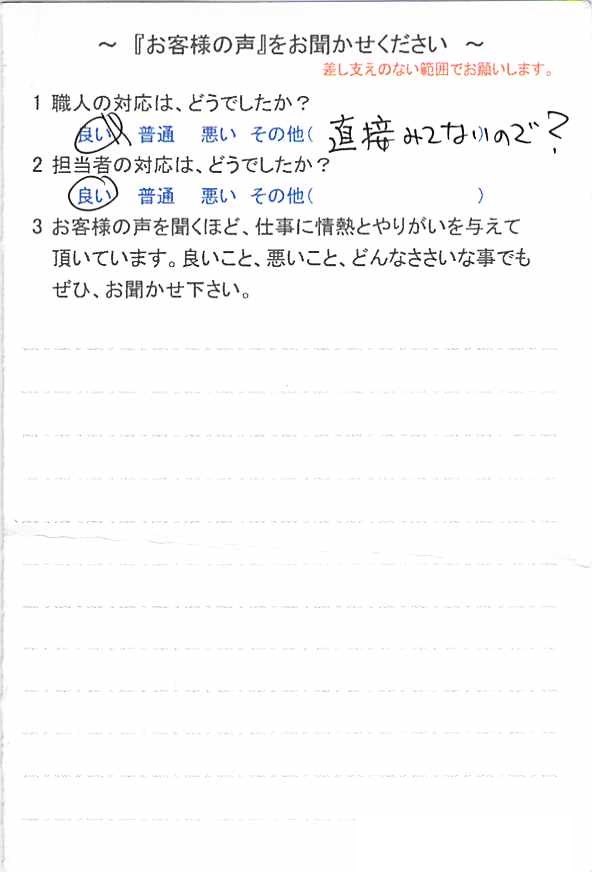 ～ 『お客様の声』をお聞かせください ～
差し支えのない範囲でお願いします。
1 職人の対応は、どうでしたか？
良い 普通 悪い その他( 直接みてないので? )
2 担当者の対応は、どうでしたか？
良い 普通 悪い その他( )
3 お客様の声を聞くほど、仕事に情熱とやりがいを与えて
頂いています。良いこと、悪いこと、どんなささいな事でも
ぜひ、お聞かせ下さい。